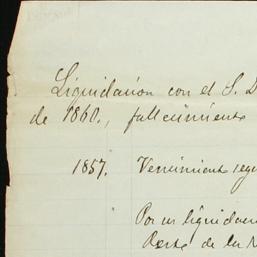 Liquidacion con el S. D
de 1860., fallecimiento
1857. Vencimiento segu
Por su liquidacion
de la